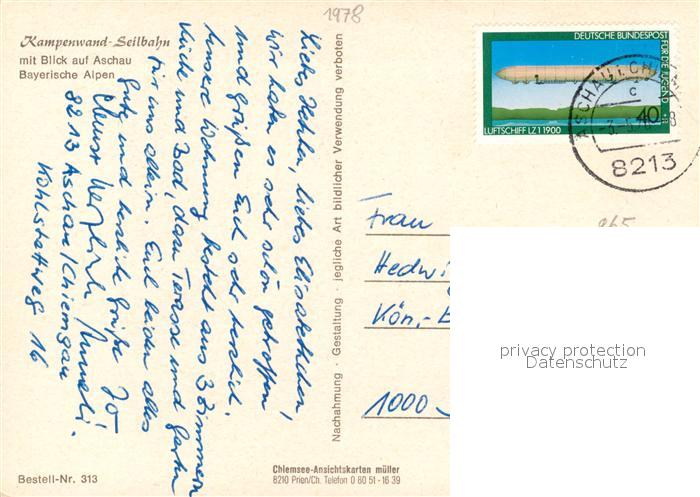 1978
Kampenwand-Seilbahn
mit Blick auf Aschau
Bayerische Alpen
Liebes Elisabethchen,
wir haben es sehr schön getroffen
und grüßen Euch sehr herzlich.
Unsere Wohnung besteht aus 3 Zimmern
Küche und Bad, dazu Terasse und Garten
für uns allein. Euch beiden alles
Gute und herzliche Grüße
8213 Aschau/Chiemgau
Kohlstattweg 16
Nachahmung · Gestaltung · jegliche Art bildlicher Verwendung verboten
DEUTSCHE BUNDESPOST
FÜR DIE JUGEND
40
LUFTSCHIFF LZ 1 1900
8213
Frau
Hedwi
Kön.-
1000
privacy protection
Datenschutz
Bestell-Nr. 313
Chiemsee-Ansichtskarten müller
8210 Prien/Ch. Telefon 0 80 51 - 16 39